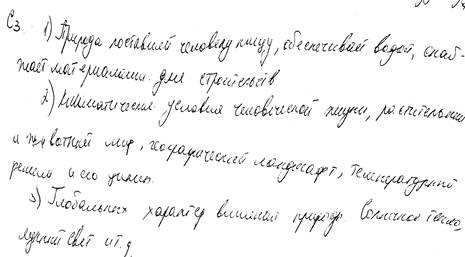 С3. 1) Природа поставляет человеку пищу, обеспечивает водой, снаб-
жает материалами для строительств
2) Климатические условия человеческой жизни, растительный
и животный мир, географический ландшафт, температурный
режим и его циклы.
3) Глобальных характер влияния природы Солнечное тепло,
лунный свет и т.д